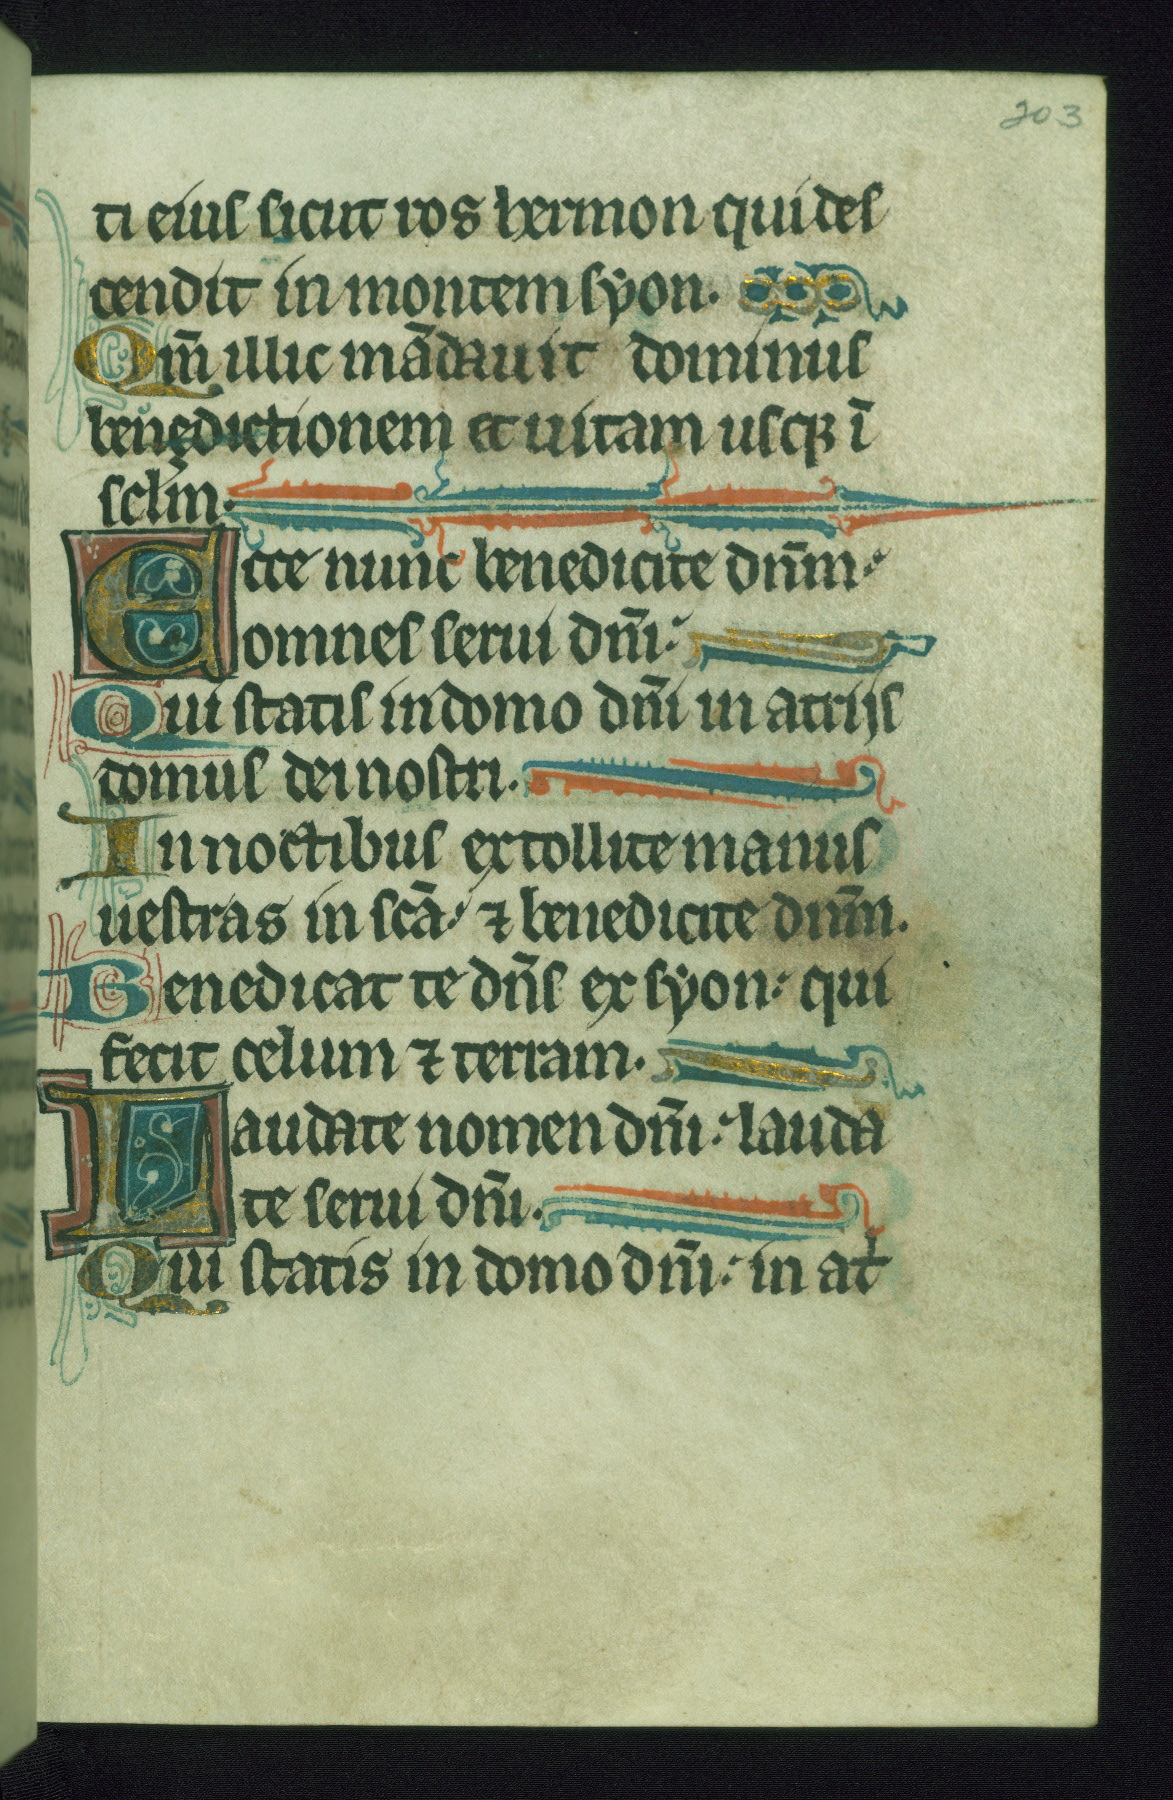 203
ti eius sicut ros hermon qui des
cendit in montem syon.
Qm̄ illic mādauit dominus
benedictionem et uitam usqꝫ ī
sclm̄.
Ecce nunc benedicite dn̄m:
omnes serui dn̄i:
Qui statis in domo dn̄i in atrijs
domus dei nostri.
In noctibus extollite manus
uestras in scā: ⁊ benedicite dn̄m.
Benedicat te dn̄s ex syon: qui
fecit celum ⁊ terram.
Laudate nomen dn̄i: lauda
te serui dn̄i.
Qui statis in domo dn̄i: in at